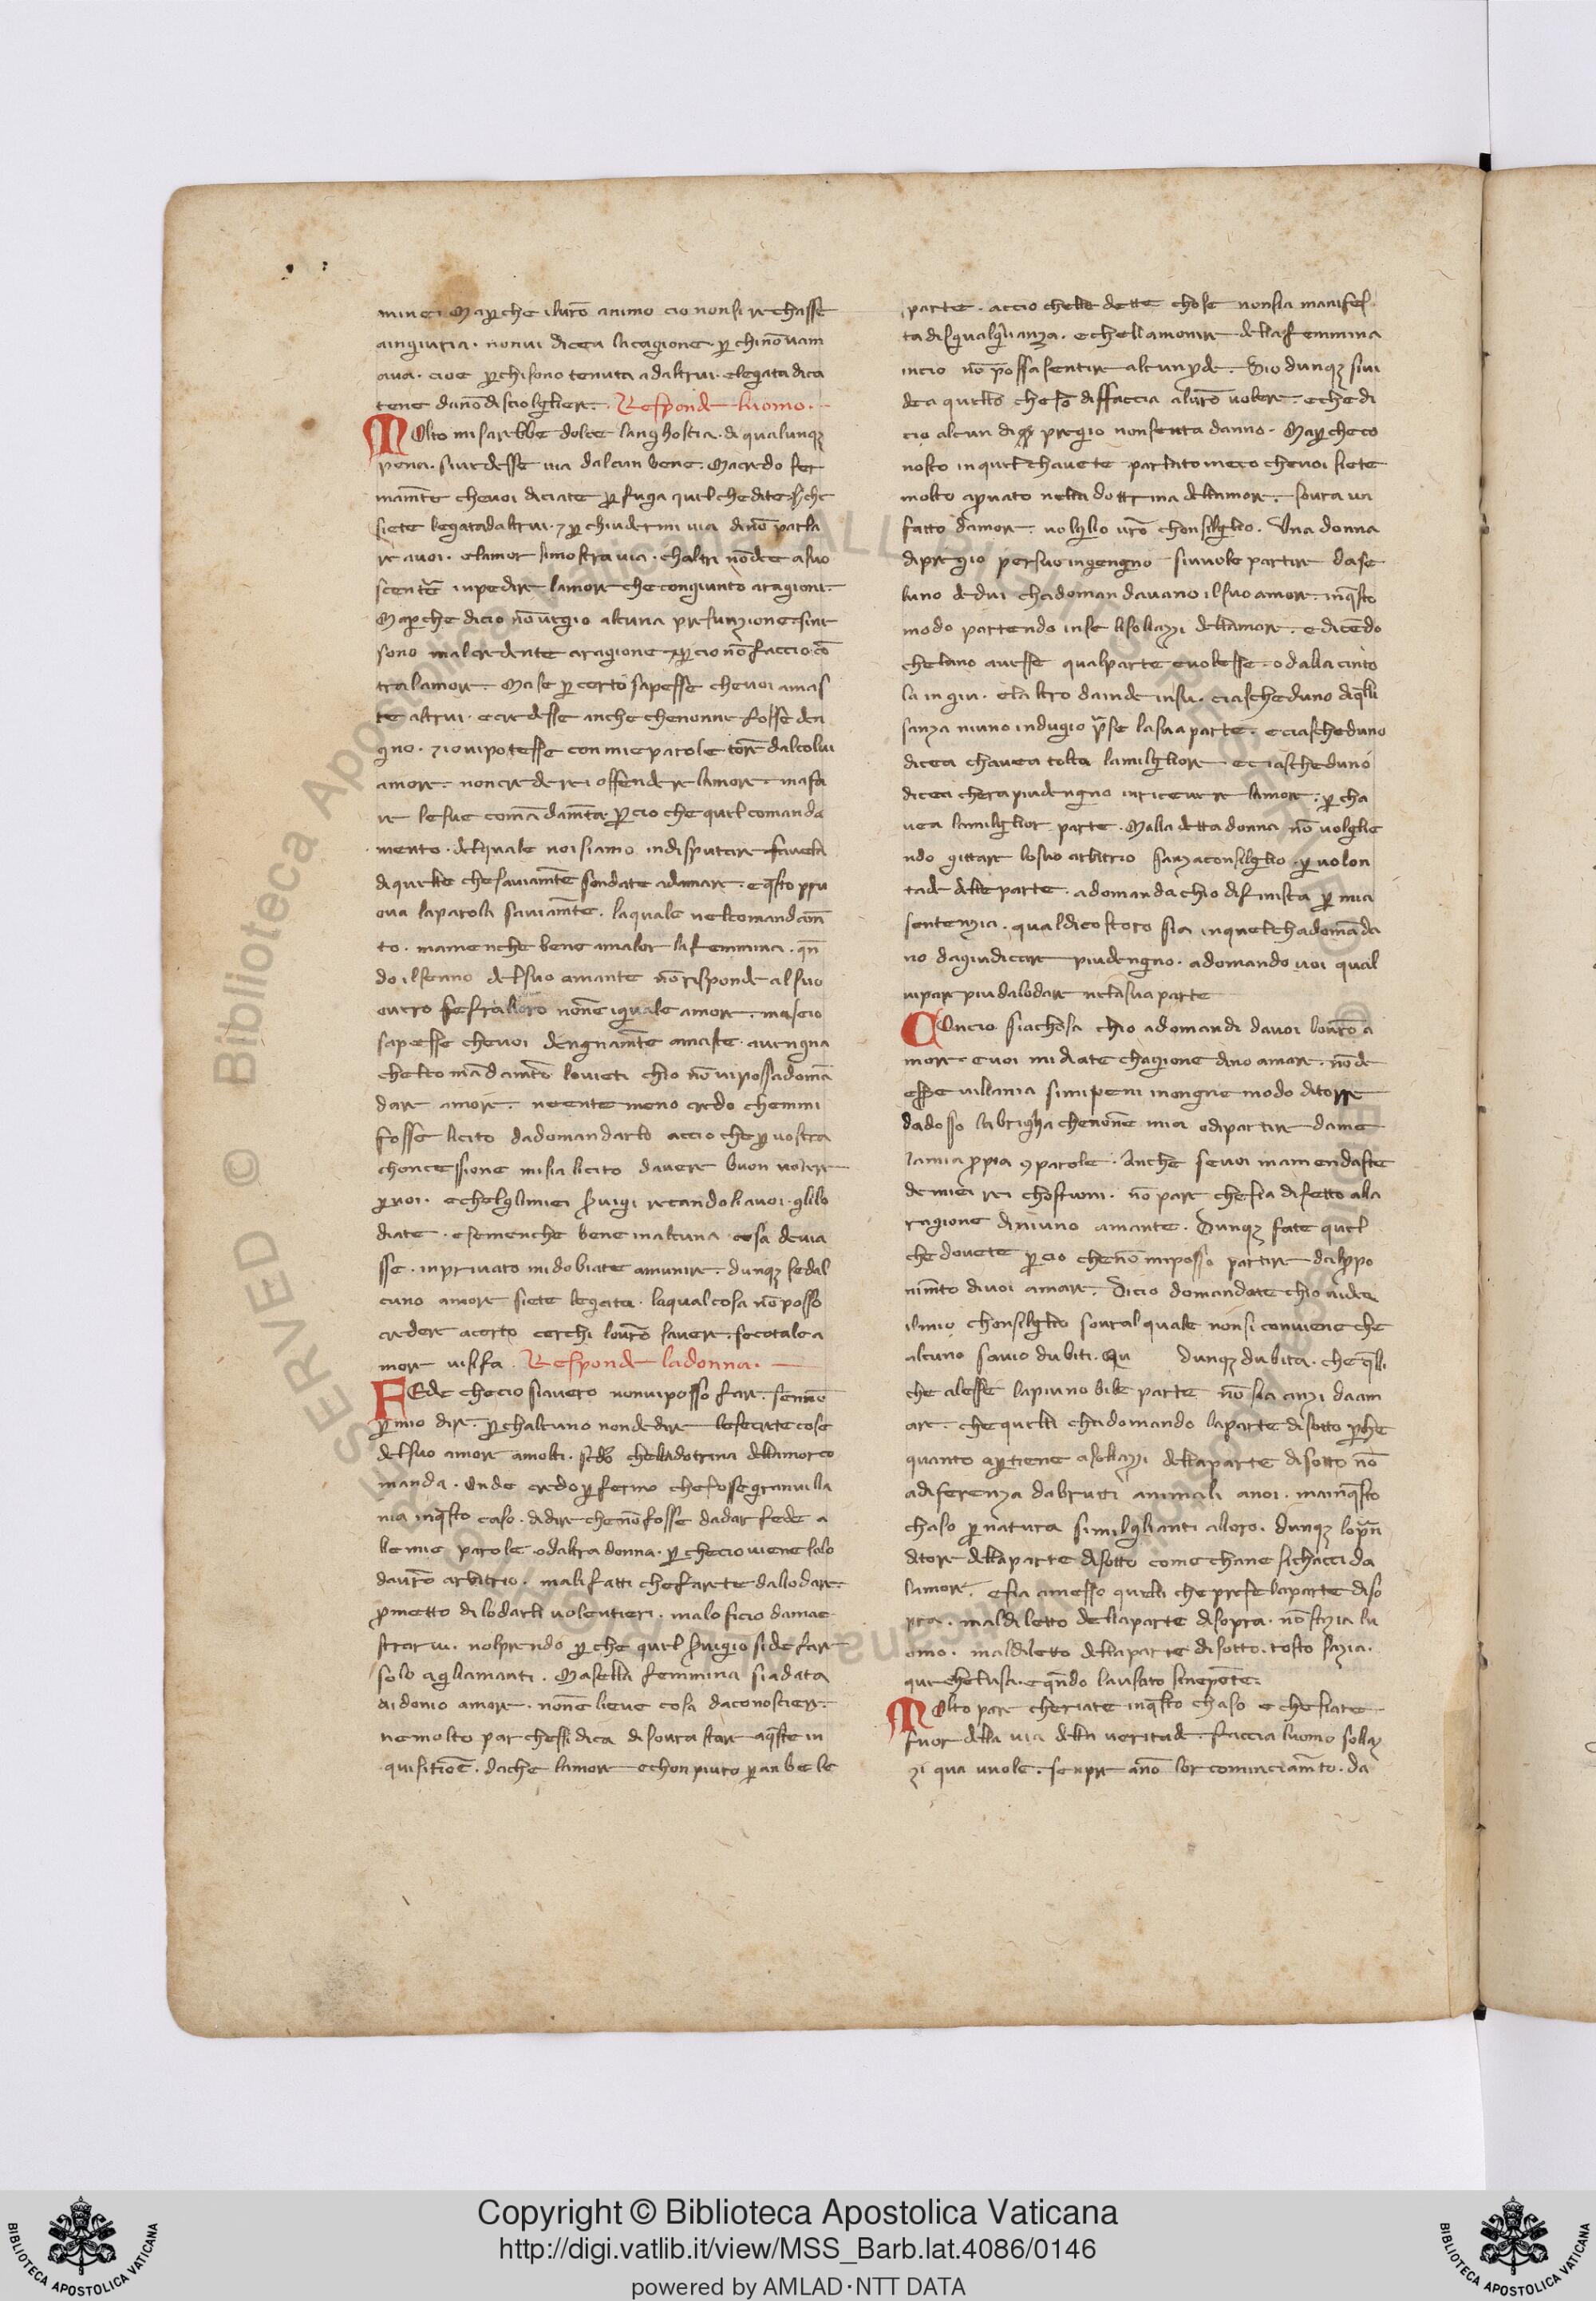 minei. Ma ꝑche iluro animo cio non si rechasse
aingiuria. non ui dicea la cagione ꝑchi no uam
aua. cioe ꝑchi sono tenuta adaltrui. e legata dica
tene da no disciolglier. Respond luomo.
Molto mi sarebbe dolce langhoscia. di qualunqȝ
pena. siuedesse uia dalcun bene. Ma credo fer
mamte cheuoi diciate ꝑ fuga quel chedite. che
siete legata daltrui. ꝑ chiudermi uia dino parla
re auoi. elamor si mostra uia. chaltri no dee asuo
sciente inpedire lamore che congiunto aragione.
Ma ꝑche dicio no uegio alcuna presunzione. sine
sono malcredente aragione ꝑcio no faccio co
tra lamore. Ma se ꝑ certo sapesse cheuoi amas
te altrui. e credesse anche chenonne fosse den
gno. io uipotesse con mie parole torre dalcolui
amore. non crederei offendere lamore. ma fa
re le sue comadamta. ꝑ cio che quel comanda
mento. delquale noi siamo indisputare fauela
di quelle che sauiamte sondate adamare. e qsto pru
oua laparola sauiamte. laquale nelcomandam
to. mamenche bene amalor la femmina. qn
do il senno del suo amante no risponde al suo
ouero se fralloro none iguale amore. ma seio
sapesse cheuoi dengnamte amaste. auengna
chelcomadamto louieti chio no ui possa doma
dare amore. neente meno credo chemmi
fosse licito dadomandarlo accio che ꝑ uostra
choncessione misia licito dauere buon uolere
ꝑ uoi. e chelgli miei seruigi recandoli auoi. glilo
diate. e semenche bene inalcuna cosa deuia
sse. inpriuato mi dobiate amunire. dunqȝ sedal
cuno amore siete legata. laqual cosa no posso
credere acerto cerchi louro sauere. secotale a
more uisifa. Respond ladonna.
Fede checio siauero nonui posso far. senno
ꝑ mio dire. ꝑchalcuno nondedire lesecrete cose
del suo amore amolti. sedo chella dotrina dellamore co
manda. Onde credo ꝑ fermo che fosse gran uilla
nia inqsto caso. didire cheno fosse dadar fede a
lle mie parole. odaltra donna. ꝑ checio uiene solo
dauro arbitrio. mali fatti che farete dallodare.
ꝓmetto di lodarli uolentieri. malo ficio damae
strarui. nolprendo ꝑ che quel seruigio si de fare
solo agliamanti. Masella femmina siadata
ai donio amore. none lieue cosa daconoscier.
ne molto par chessi dica disoura stare aqste in
quisitioe. dache lamore echonpiuto ꝑ an bele
parte. accio chelle dette chose nonsia manifes
ta disgualglianza. e chellamonire della femmina
incio no possa sentire alcun ꝑde. Dio dunqȝ siui
dea quello che so diffaccia aluro uolere. e che di
cio alcun di pregio nonsenta danno. Ma ꝑche co
nosco inquel chauete parlato meco cheuoi siete
molto aprouato nella dottrina dellamore. soura un
fatto damore. uolglio uro chonsilglio. Una donna
dipregio per suo ingengno siuuole partire dase
luno dedui chadomandauano il suo amore. inqsto
modo partendo inse lisollazzi dellamore. e dicedo
cheluno auesse qualparte euolesse. o dalla cinto
la in giu. elaltro dainde insu. ciascheduno diqlli
sanza niuno indugio ꝑse lasua parte. e ciascheduno
dicea chauea tolta lamilgliore. e ciascheduno
dicea chera piudengno inriceuere lamore. ꝑ cha
uea lamilglior parte. Malla detta donna no uolglie
ndo gittare losuo arbitrio sanza consilglio. ꝑ uolon
tade delle parte. adomanda chio difinisca ꝑ mia
sentenzia. qual dicostoro sia inquel chadomada
no dagiudicare piudengno. adomando uoi qual
uipar piu dalodare nelasua parte
Concio siachosa chio adomandi dauoi louro a
more. e uoi midiate chagione dino amare. no de
essere uillania simipeni inongne modo ditorre
dadosso labrigha chenone mia odipartire dame
lamia ꝓpia parole. Anche seuoi mamendaste
demiei rei chostumi. no pare chesia difetto alla
ragione diniuno amante. Dunqȝ fate quel
che douete ꝑ cio cheno miposso partire dalꝓpo
nimto diuoi amare. Dicio domandate chio uidea
ilmio chonsilglio soural quale nonsi conuiene che
alcuno sauio dubiti. Qu dunqȝ dubita. che qlli
che alesse lapiu nobile parte no sia anzi daam
are. che quelli chadomando laparte disotto ꝑche
quanto aꝑtiene asollazzi dellaparte disotto no
adiferenza dabruti animali anoi. mainqsto
chaso ꝑ natura similglianti alloro. dunqȝ lopn
ditore dellaparte disotto come chane sichacci da
lamore. e sia amesso quelli che prese laparte diso
pra. maldiletto dellaparte disopra. no sazia lu
omo. maldiletto dellaparte disotto. tosto sazia.
que chelusa. e qndo lausato sinepente.
Molto par cheriate inqsto chaso e che siate
fuor della uia della ueritade. faccia luomo sollaz
zi qua uuole. senpre ano lor cominciamto. da
Copyright © Biblioteca Apostolica Vaticana
http://digi.vatlib.it/view/MSS_Barb.lat.4086/0146
powered by AMLAD·NTT DATA
BIBLIOTECA APOSTOLICA VATICANA
BIBLIOTECA APOSTOLICA VATICANA